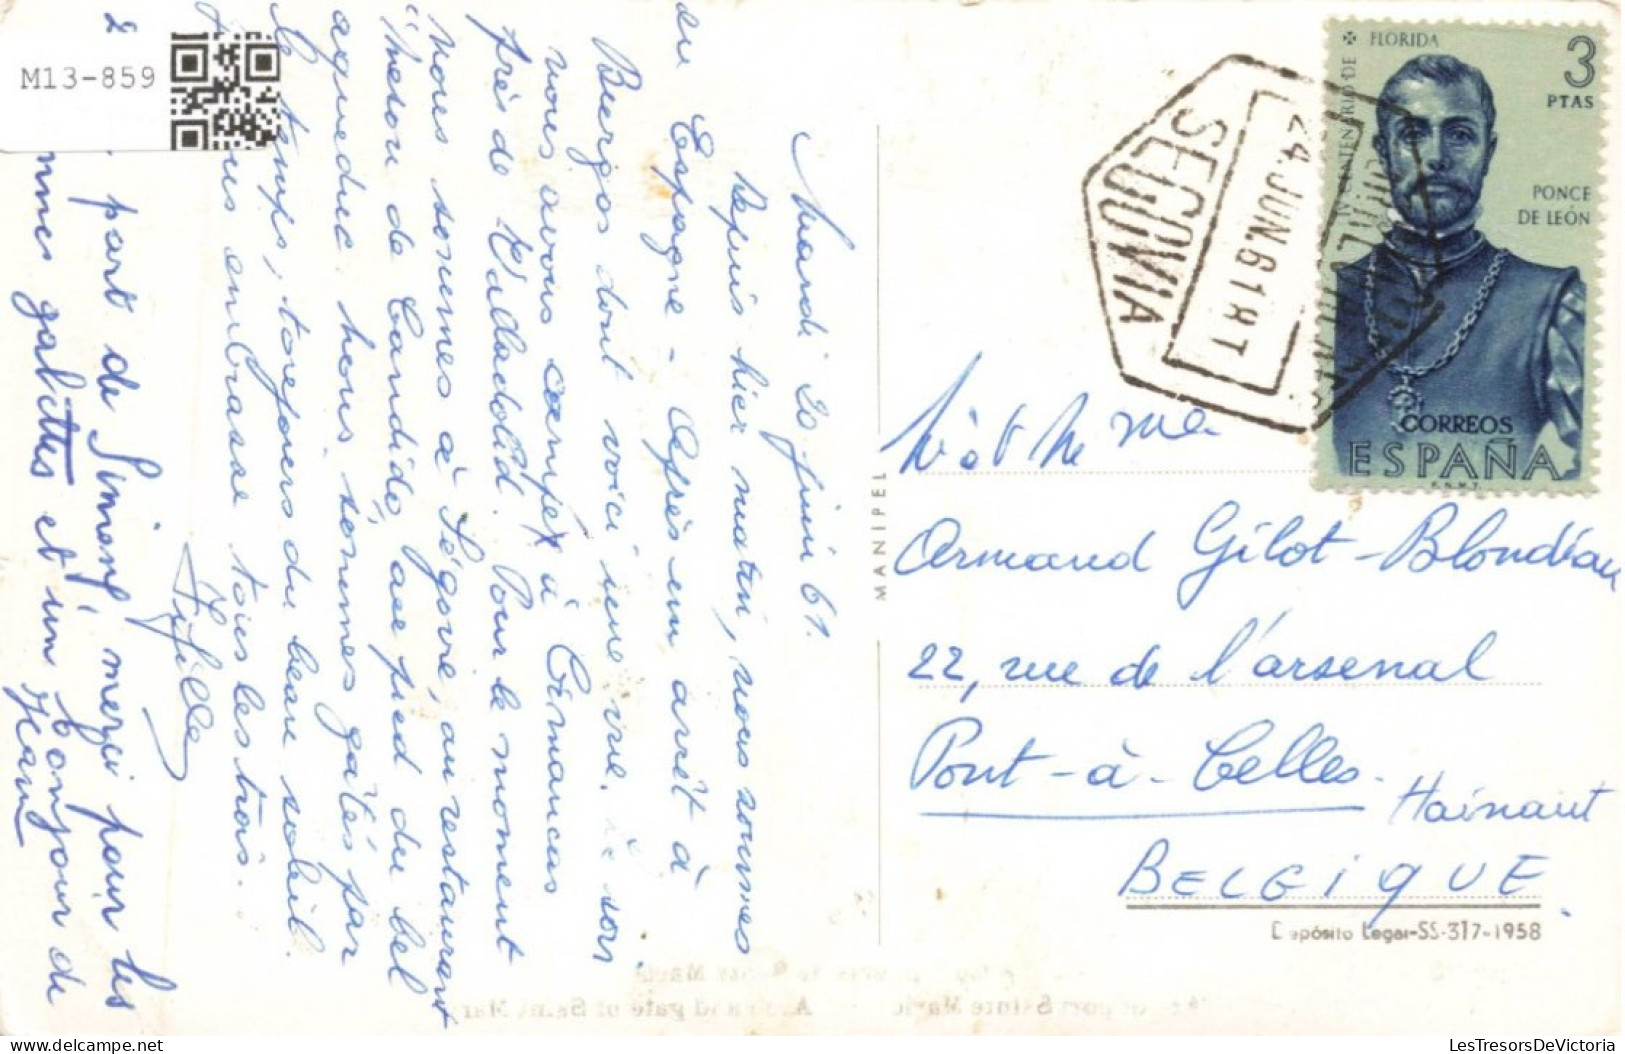 M13-859
Mardi 20 juin 61.
Depuis hier matin, nous sommes
en Espagne - Après un arrêt à
Burgos dont voici une vue, le soir
nous avons campé à Simancas
près de Valladolid. Pour le moment
nous sommes à Ségovie, au restaurant
Mesón de Candido, au pied du bel
aqueduc. Nous sommes gâtés par
le temps, toujours du beau soleil.
vous embrasse tous les trois.
Fifille
part de Simone, merci pour les
galettes et un bonjour de
Jean
MANIPEL
SEGOVIA
24.JUN.61 8T
IV CENTENARIO DE FLORIDA
3
PTAS
PONCE
DE LEÓN
CORREOS
ESPAÑA
F.N.M.T.
Armand Gilot-Blondiau
22, rue de l'arsenal
Pont-à-Celles.
Hainaut
BELGIQUE.
Depósito Legal-SS-317-1958
LesTresorsDeVictoria